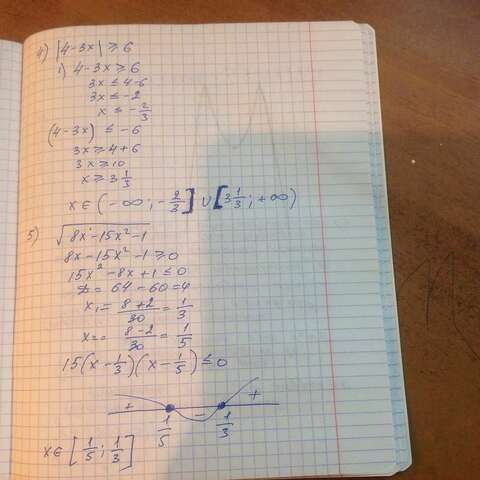 4) |4-3x| ≥ 6
1) 4-3x ≥ 6
3x ≤ 4-6
3x ≤ -2
x ≤ -2/3
(4-3x) ≤ -6
3x ≥ 4+6
3x ≥ 10
x ≥ 3 1/3
x ∈ (-∞; -2/3] ∪ [3 1/3; +∞)
5) √8x-15x²-1
8x-15x²-1 ≥ 0
15x²-8x+1 ≤ 0
D = 64-60=4
x₁ = 8+2/30 = 1/3
x₂ = 8-2/30 = 1/5
15(x-1/3)(x-1/5) ≤ 0
+ - +
1/5 1/3
x ∈ [1/5; 1/3]